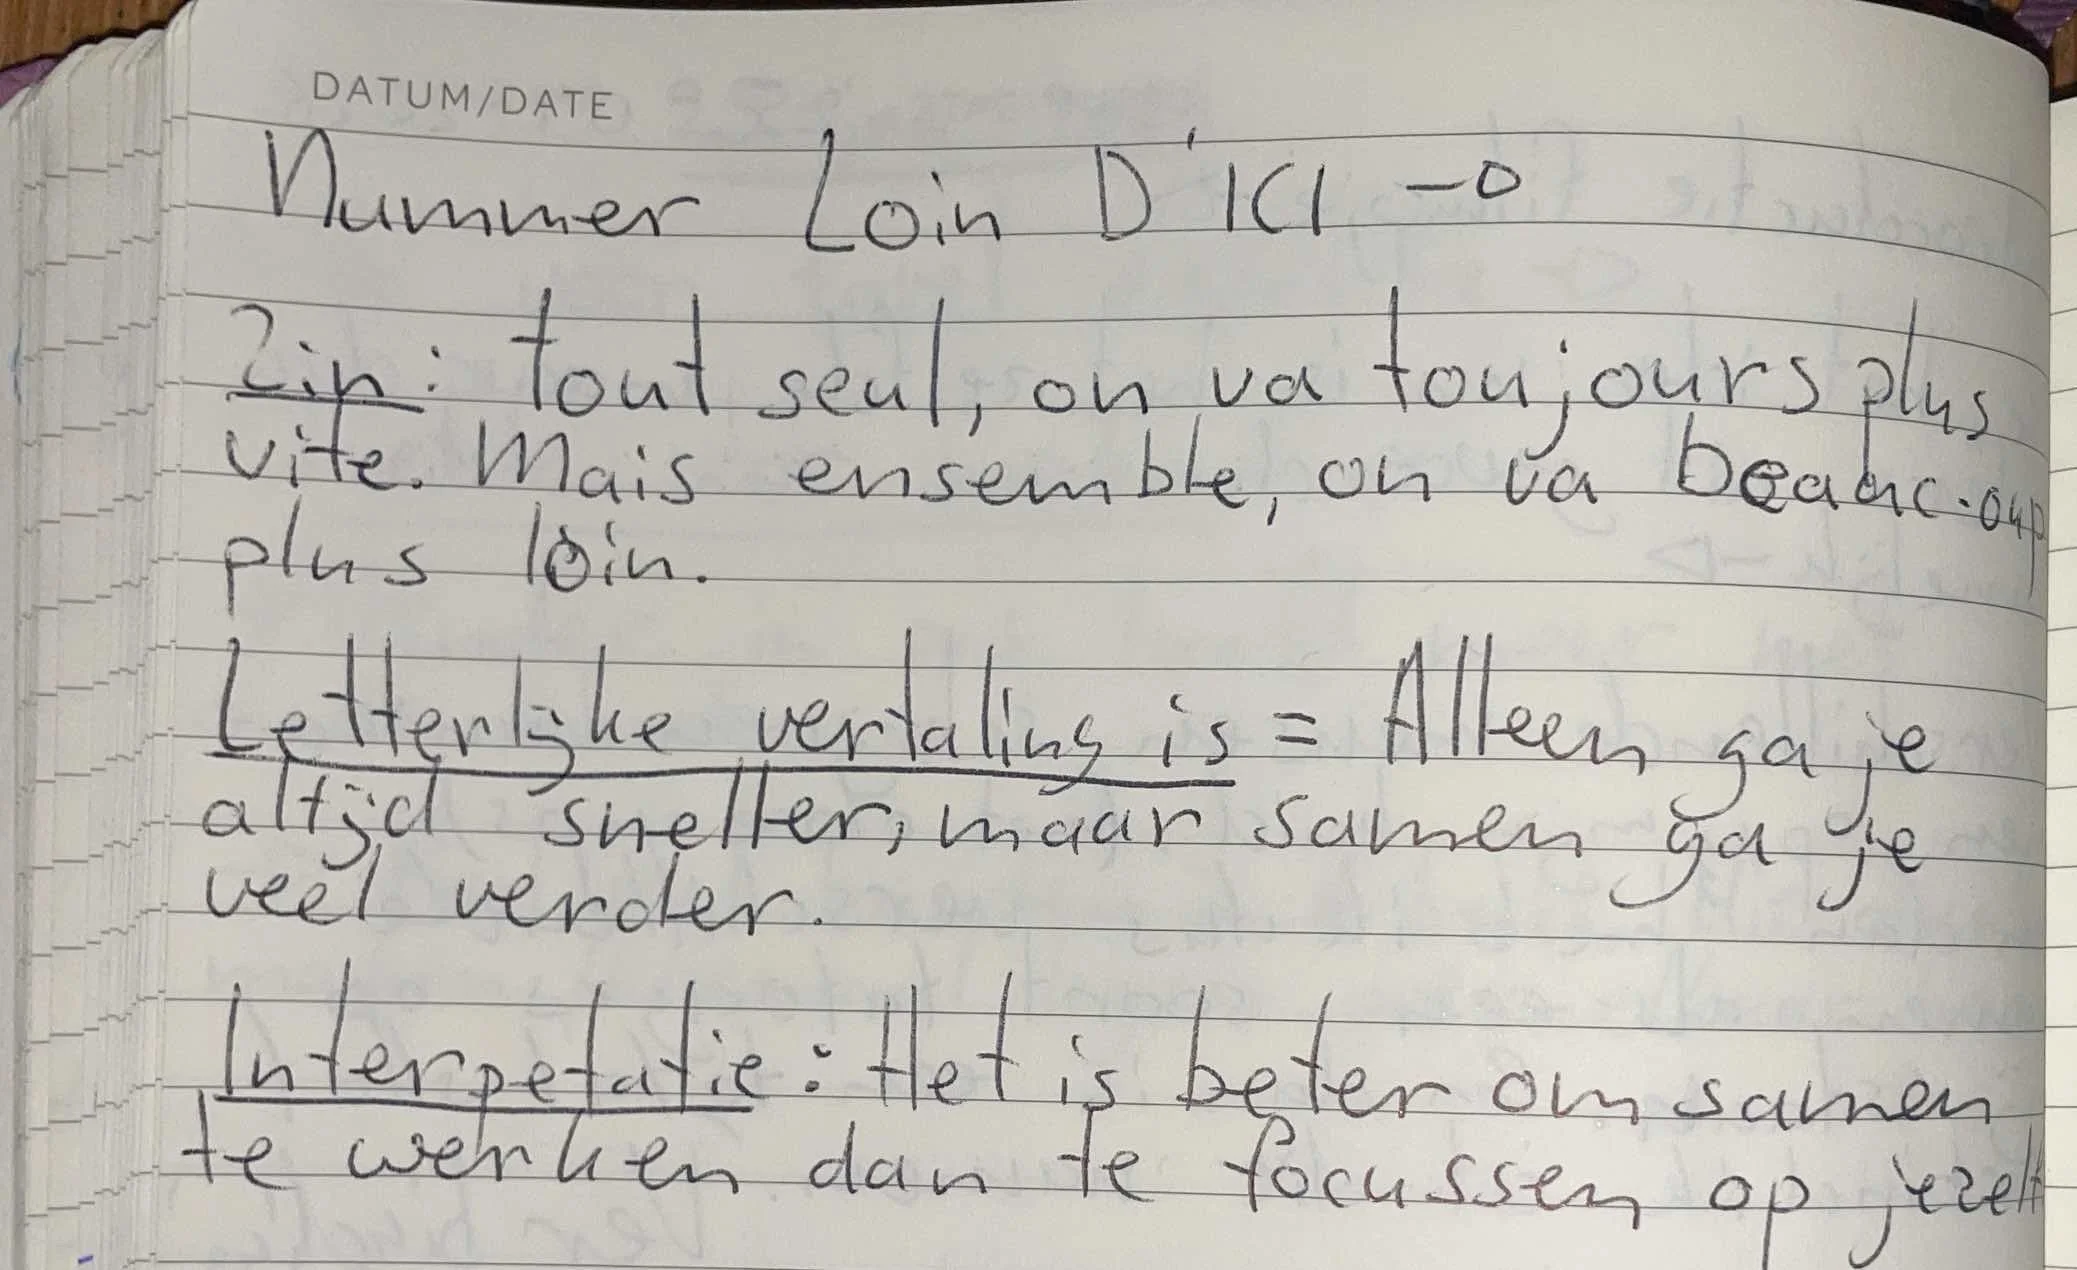 DATUM/DATE
Nummer Loin D'ICI →
Zin: tout seul, on va toujours plus
vite. Mais ensemble, on va beauc.oup
plus loin.
Letterlijke vertaling is = Alleen ga je
altijd sneller, maar samen ga je
veel verder.
Interpetatie: Het is beter om samen
te werken dan te focussen op jezelf